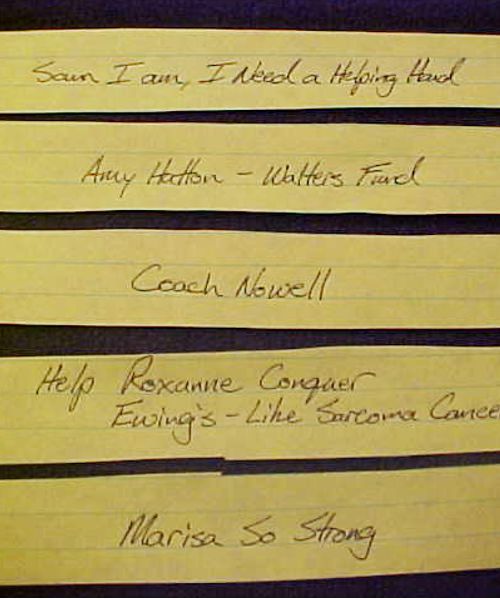 Sam I am, I Need a Helping Hand
Amy Hatton - Walters Fund
Coach Nowell
Help Roxanne Conquer
Ewing's - Like Sarcoma Cance
Marisa So Strong